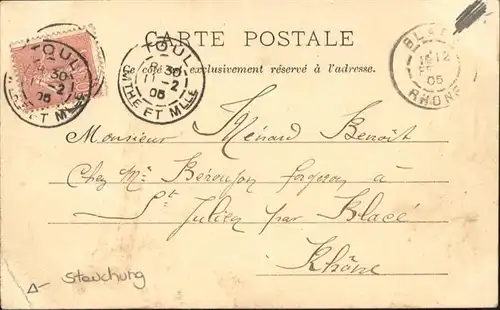 CARTE POSTALE
Ce côté est exclusivement réservé à l'adresse.
TOUL
8 30
11-2
05
MTHE ET MLLE
TOUL
8 30
11-2
05
MTHE ET MLLE
BLACÉ
12
05
RHÔNE
Monsieur Ménard Benoit
Chez Mr forgeron à
St Julien par Blacé
Rhône
Stauchung